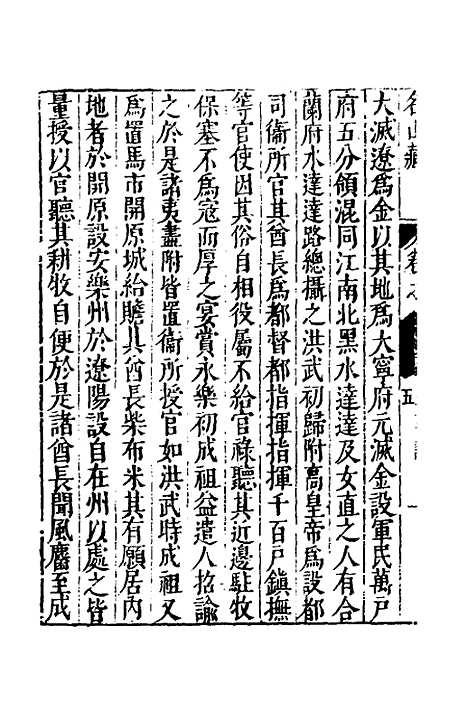 名山藏 卷之 五
大滅遼爲金以其地爲大寧府元滅金設軍民萬戶
府五分領混同江南北黑水達達及女直之人有合
蘭府水達達路總攝之洪武初歸附高皇帝爲設都
司衞所官其酋長爲都督都指揮指揮千百戶鎮撫
等官使因其俗自相役屬不給官祿聽其近邊駐牧
保塞不爲寇而厚之宴賞永樂初成祖益遣人招諭
之於是諸夷盡附皆置衞所授官如洪武時成祖又
爲置馬市開原城給贍其酋長柴布米其有願居內
地者於開原設安樂州於遼陽設自在州以處之皆
量授以官聽其耕牧自便於是諸酋長聞風麕至成